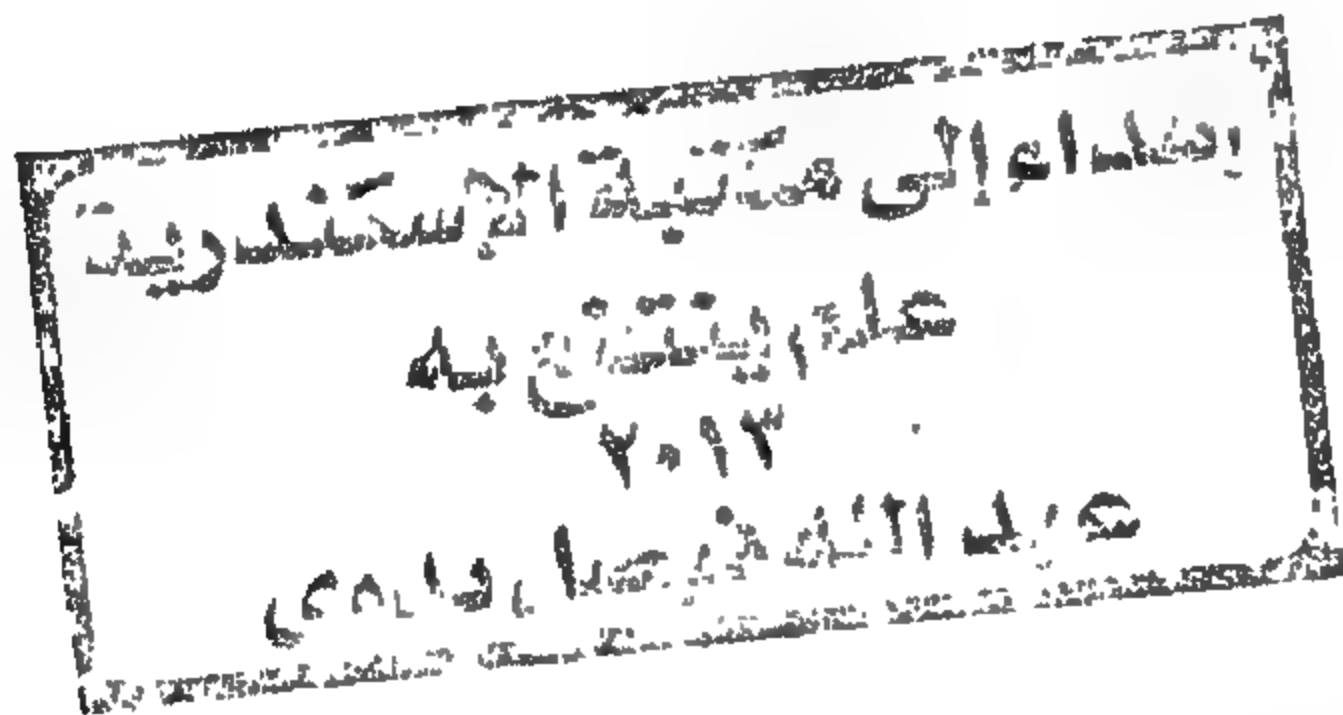 إهداء إلى مكتبة الإسكندرية
علم ينتفع به
٢٠١٣
عبد